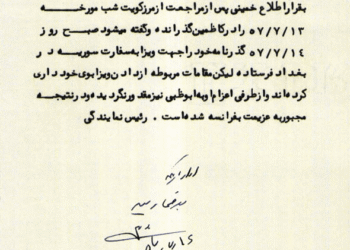 بقرار اطلاع خمینی پس از مراجعت از مرز کویت شب مورخه
۵۷/۷/۱۳ را در کاظمین گذرانده و گفته میشود صبح روز
۵۷/۷/۱۴ گذرنامه خود را جهت ویزا به سفارت سوریه در
بغداد فرستاده لیکن مقامات مربوطه از دادن ویزا بوی خود داری
کرده اند و از طرفی اعزام وی به ابوظبی نیز مقدور نگردیده و در نتیجه
مجبور به عزیمت بفرانسه شده است . رئیس نمایندگی